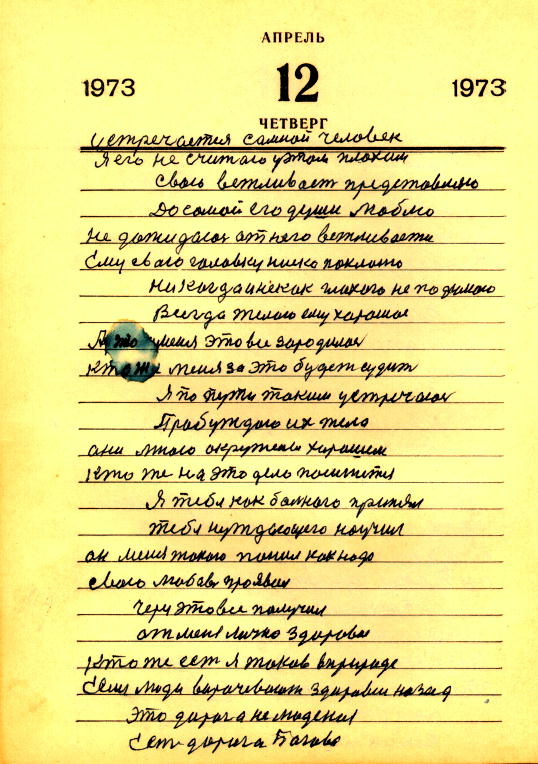 АПРЕЛЬ
1973 12 1973
ЧЕТВЕРГ
устречается самной человек
Я его не считаю этом плохим
Сваю ветливаст представляю
До самой его души люблю
Не дажидаюс ат него ветливасти
Ему сваю головку ниско поклоню
Никагда инекак плохого не подумаю
Всегда желаю ему харошое
А уменя это все зародилос
Кто же меня за это будет судит
Я по пути таким устречаюс
Прабуждаю их тело
ани много окружены харошим
Кто же на это дело
Я тебя как балного принял
тебя нуждающего научил
он меня такого понял как надо
сваю любов проявил
Через это все получил
от меня личко здоровье
Кто же ест я таков вприроде
Если люди варачивают здоровье назад
Это дорога не людская
Ест дорога Богова